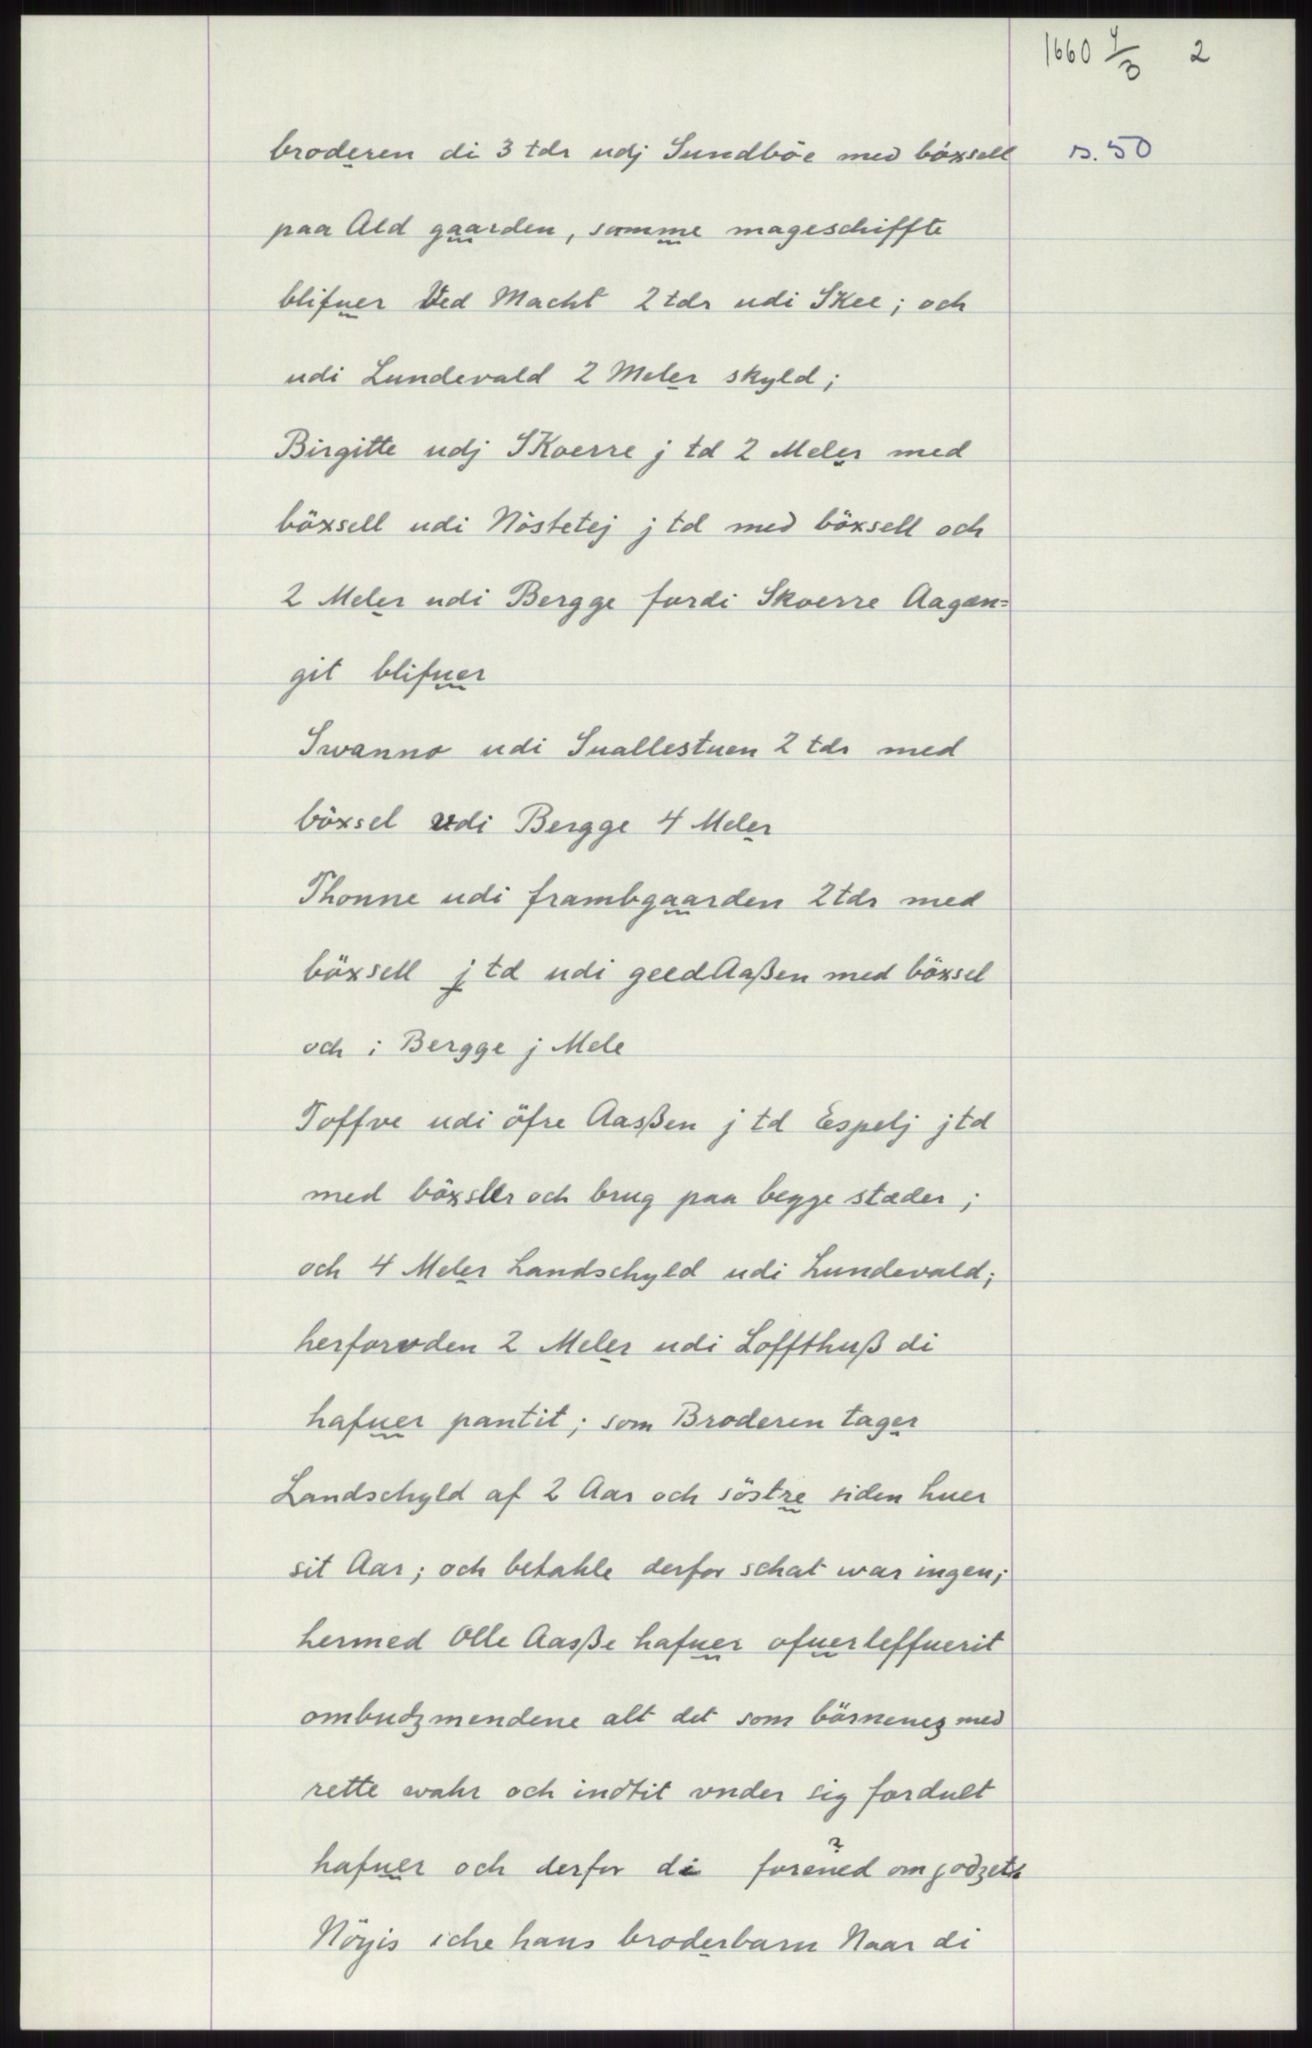 1660 4/3 2
broderen di 3 tdr udj Sundböe med böxsell s. 50
paa Ald gaarden, somme mageschiffte
blifuer Ved Macht 2 tdr udi SKee; och
udi Lundevald 2 Meler skyld;
Birgitte udj SKoerre j td 2 Meler med
böxsell udi Nöstetej j td med böxsell och
2 Meler udi Bergge fordi Skoerre Aagan=
git blifuer
Swanno udi Suallestuen 2 tdr med
böxsel udi Bergge 4 Meler
Thonne udi frambgaarden 2 tdr med
böxsell j td udi geedAaßen med böxsel
och i Bergge j Mele
Toffve udi öfre Aasßen j td Espelj j td
med böxsler och brug paa begge stæder;
och 4 Meler Landschyld udi Lundevald;
herforvden 2 Meler udi Loffthuß di
hafuer pantit; som Broderen tager
Landschyld af 2 Aar och söstre siden huer
sit Aar; och betahle derfor schat war ingen;
hermed Olle Aasße hafuer ofuerleffuerit
ombudzmendene alt det som börnenez med
rette wahr och indtit vnder sig fordult
hafuer och derfor di forened ? om godzet
Nöyis iche hans broderbarn Naar di